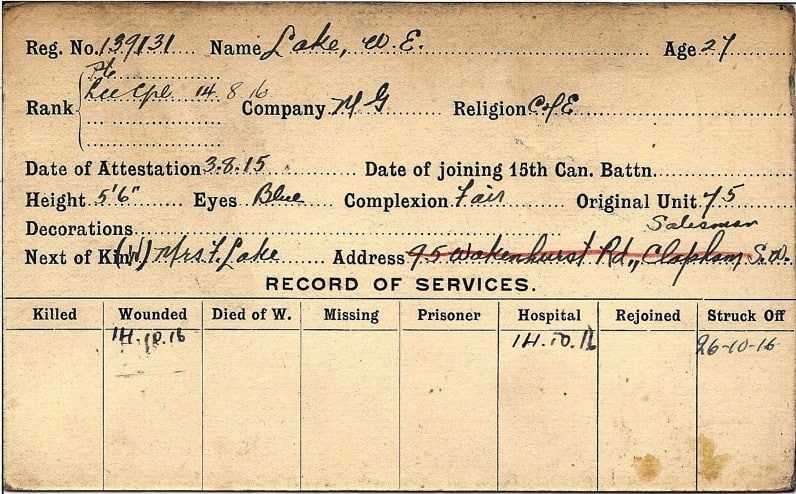 Reg. No. 139131 Name Lake, W. E. Age 27
Pte
Rank Lce Cpl 14 8 16 Company M G Religion C of E
Date of Attestation 3.8.15 Date of joining 15th Can. Battn.
Height 5'6" Eyes Blue Complexion Fair Original Unit 75
Decorations Salesman
Next of Kin (W) Mrs. F. Lake Address 95 Wakenhurst Rd., Clapham, S.W.
RECORD OF SERVICES.
Killed Wounded Died of W. Missing Prisoner Hospital Rejoined Struck Off
14.10.16 14.10.16 26-10-16